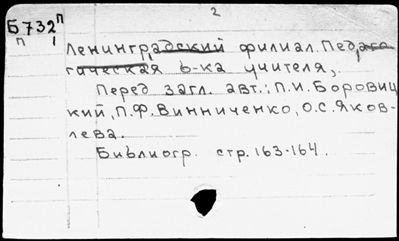 2
Б732п
п 1
Ленинградский филиал. Педаго
гическая б-ка учителя,.
Перед загл. авт.: П.И. Боровиц
кий, П.Ф. Винниченко, О.С. Яков-
лева.
Библиогр. стр. 163-164.